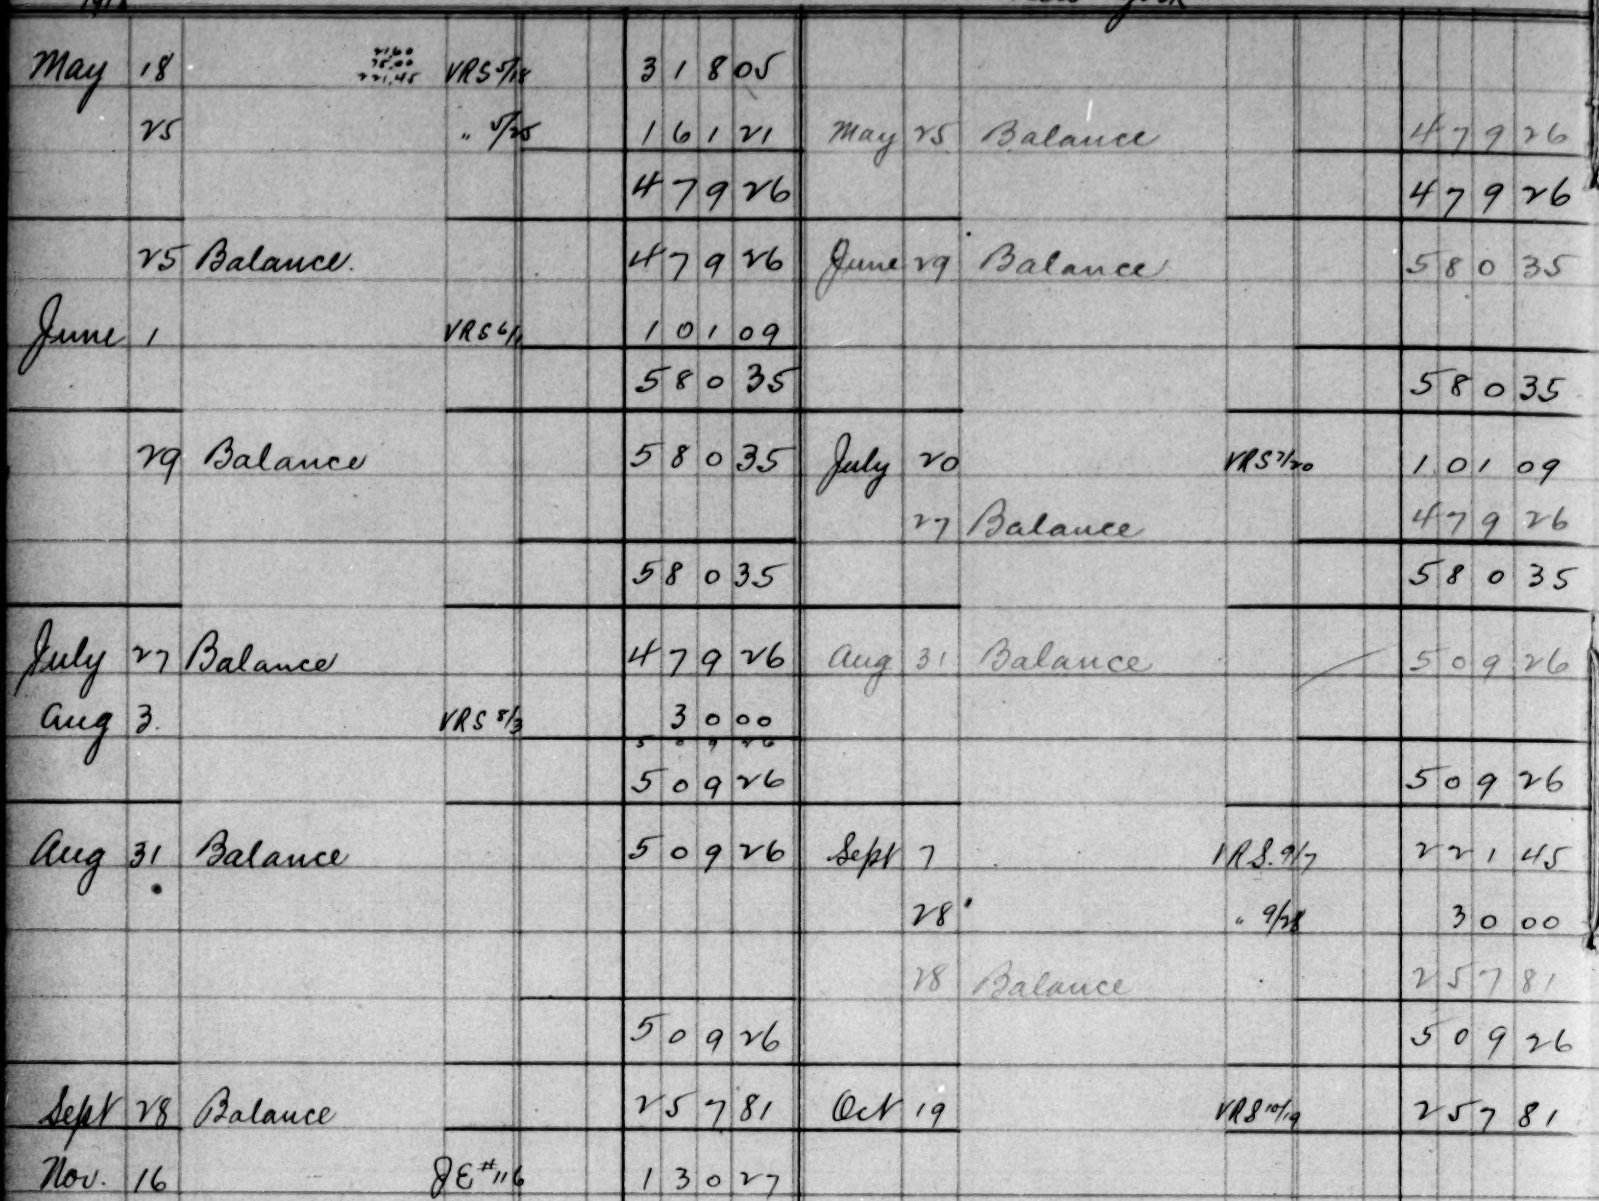 21.60
75.00
May 18 221.45 VRS 5/18 318 05
25 " 5/25 161 21 May 25 Balance 479 26
479 26 479 26
25 Balance. 479 26 June 29 Balance 580 35
June 1 VRS 6/1 101 09
580 35 580 35
29 Balance 580 35 July 20 VRS 7/20 101 09
27 Balance 479 26
580 35 580 35
July 27 Balance 479 26 Aug 31 Balance 509 26
Aug 3. VRS 8/3 30 00
509 26
509 26 509 26
Aug 31 Balance 509 26 Sept 7 VRS. 9/7 221 45
28 " 9/28 30 00
28 Balance 257 81
509 26 509 26
Sept 28 Balance 257 81 Oct 19 VRS 10/19 257 81
Nov. 16 JE #116 130 27